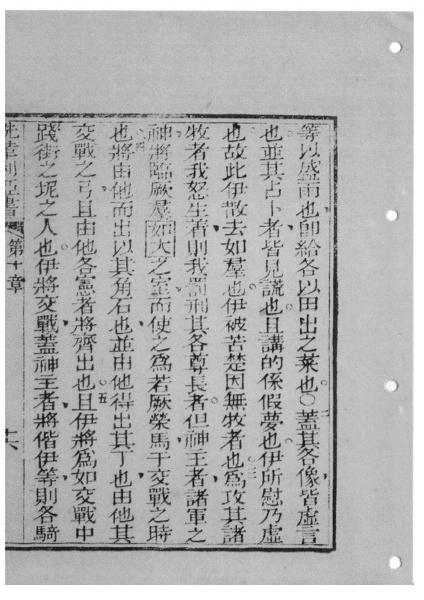 等以盛雨也卽給各以田出之菜也○二蓋其各像皆虛言
也並其占卜者皆見謊也且講的係假夢也伊所慰乃虛
也故此伊散去如羣也伊被苦楚因無牧者也三為攻其諸
牧者我怒生著則我罰刑其各尊長者但神主者諸軍之
神將臨厥羣如大之室而使之為若厥榮馬于交戰之時
也四將由他而出以其角石也並由他得出其丁也由他其
交戰之弓且由他各憲者將齊出也五且伊將為如交戰中
踐街之坭之人也伊將交戰蓋神主者將偕伊等則各騎
利亞書 第十章 十六